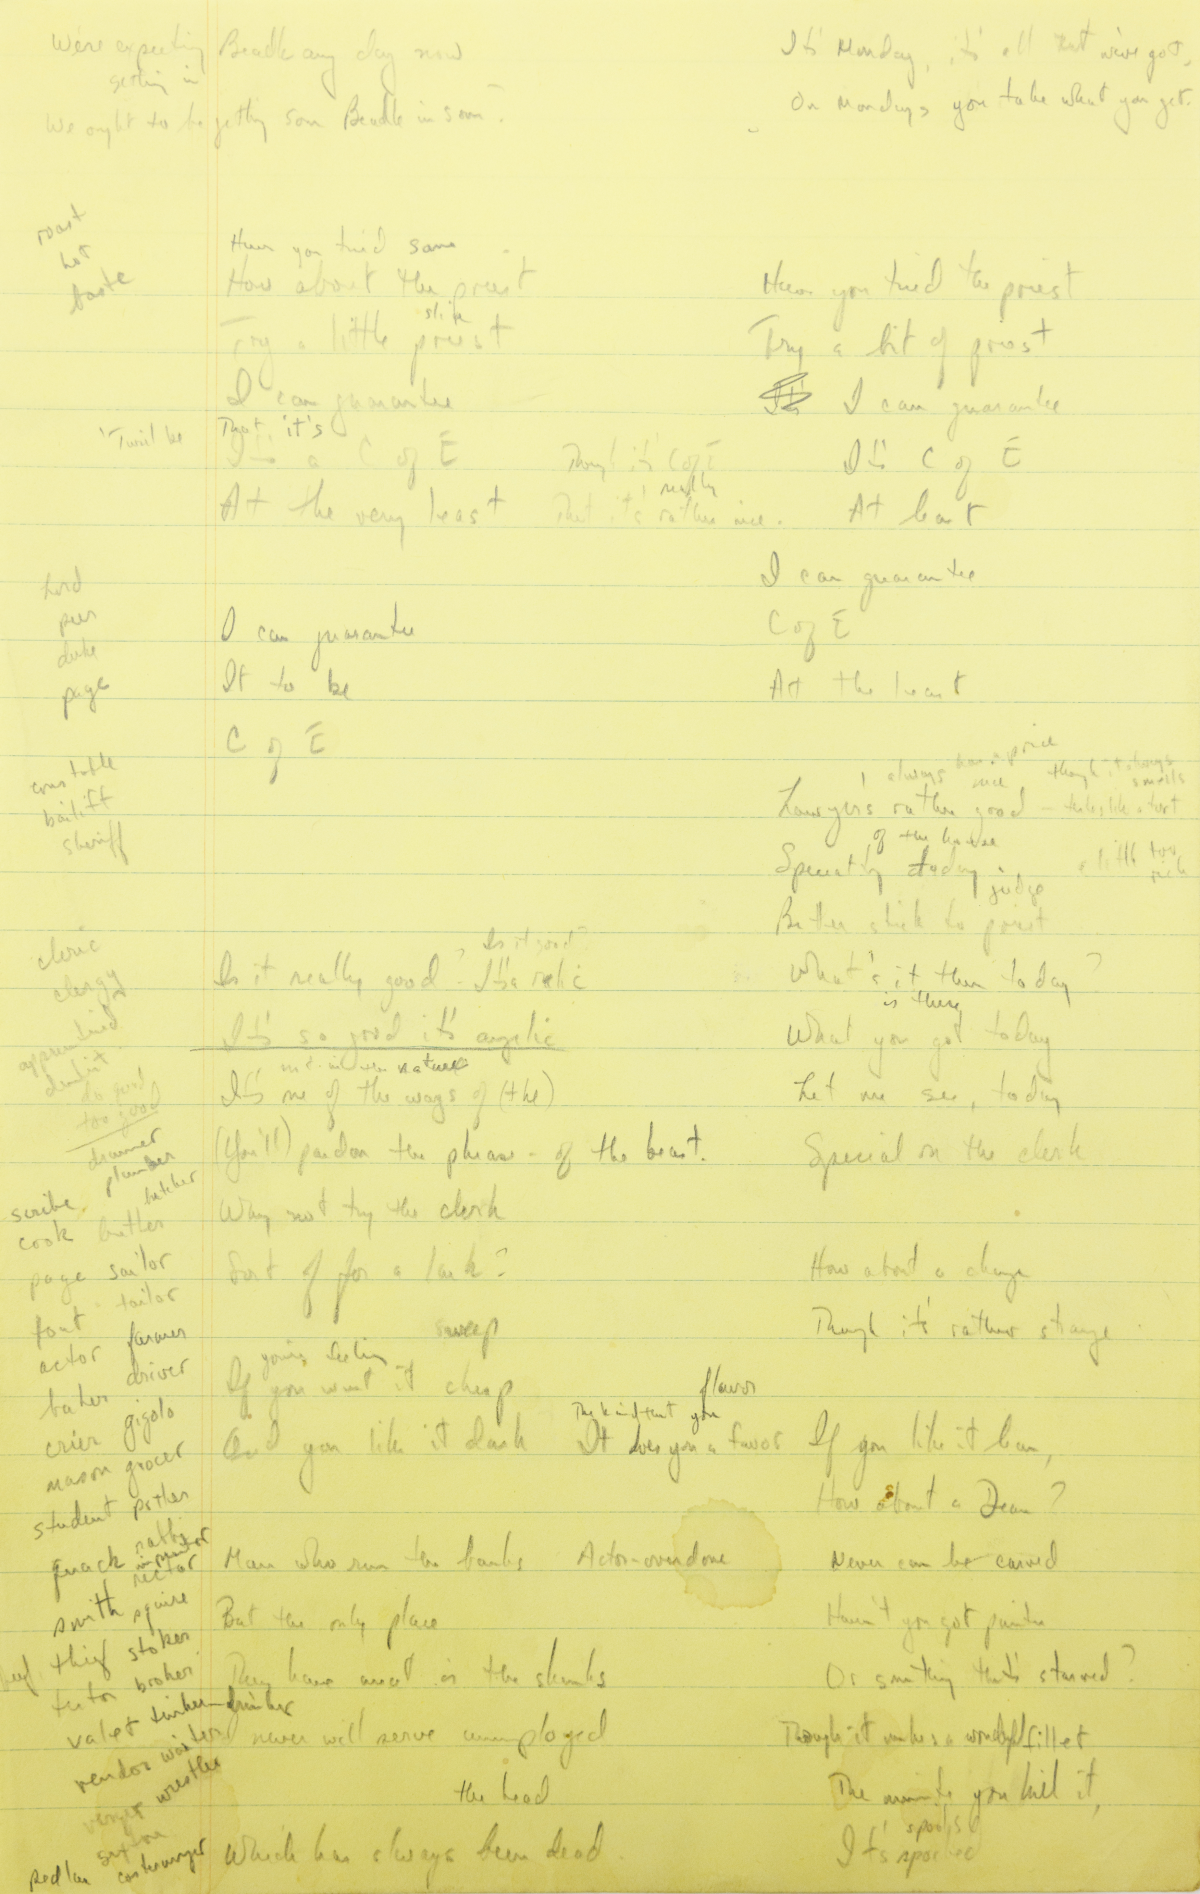 We're expecting Beadle any day now
getting in
We ought to be getting some Beadle in soon.
It's Monday, it's all that we've got,
On Mondays you take what you get.
roast
hot
baste
Have you tried some
How about the priest
slice
Try a little priest
I can guarantee
'Twill be
That it's
It's a C of E
Though it's C of E
really
At the very least
That it's rather nice.
Have you tried the priest
Try a bit of priest
I can guarantee
It's C of E
At least
I can guarantee
C of E
At the least
lord
peer
duke
page
I can guarantee
It to be
C of E
constable
bailiff
sheriff
always
price
nice
though it always
smells
Lawyer's rather good
of the house
Specialty today
a little too
rich
judge
Better stick to priest
What's it then today?
is there
What you got today
Let me see, today
Special on the clerk
cleric
clergy
apprenticed
dentist
do good
too good
Is it good?
Is it really good? It's a relic
It's so good it's angelic
nature
It's one of the ways of (the)
(You'll) pardon the phrase - of the beast.
Why not try the clerk
Sort of for a lark?
sweep
you're feeling
If you want it cheap
And you like it dark
flavor
The kind that you
It does you a favor
How about a change
Though it's rather strange
If you like it lean,
How about a Dean?
drummer
plumber
butcher
scribe
cook butler
page sailor
tailor
actor farmer
baker driver
crier gigolo
mason grocer
student potter
quack rabbi
rector
smith squire
thief stoker
tutor broker
valet tinker drinker
vendor waiter
verger wrestler
sexton
pedlar costermonger
Men who run the banks
Actor - overdone
But the only place
They have meat is the shanks
I never will serve unemployed
the head
Which has always been dead.
Never can be carved
Haven't you got painter
Or something that's starved?
Though it makes a wonderful fillet
The minute you kill it,
spoils
It's spoiled